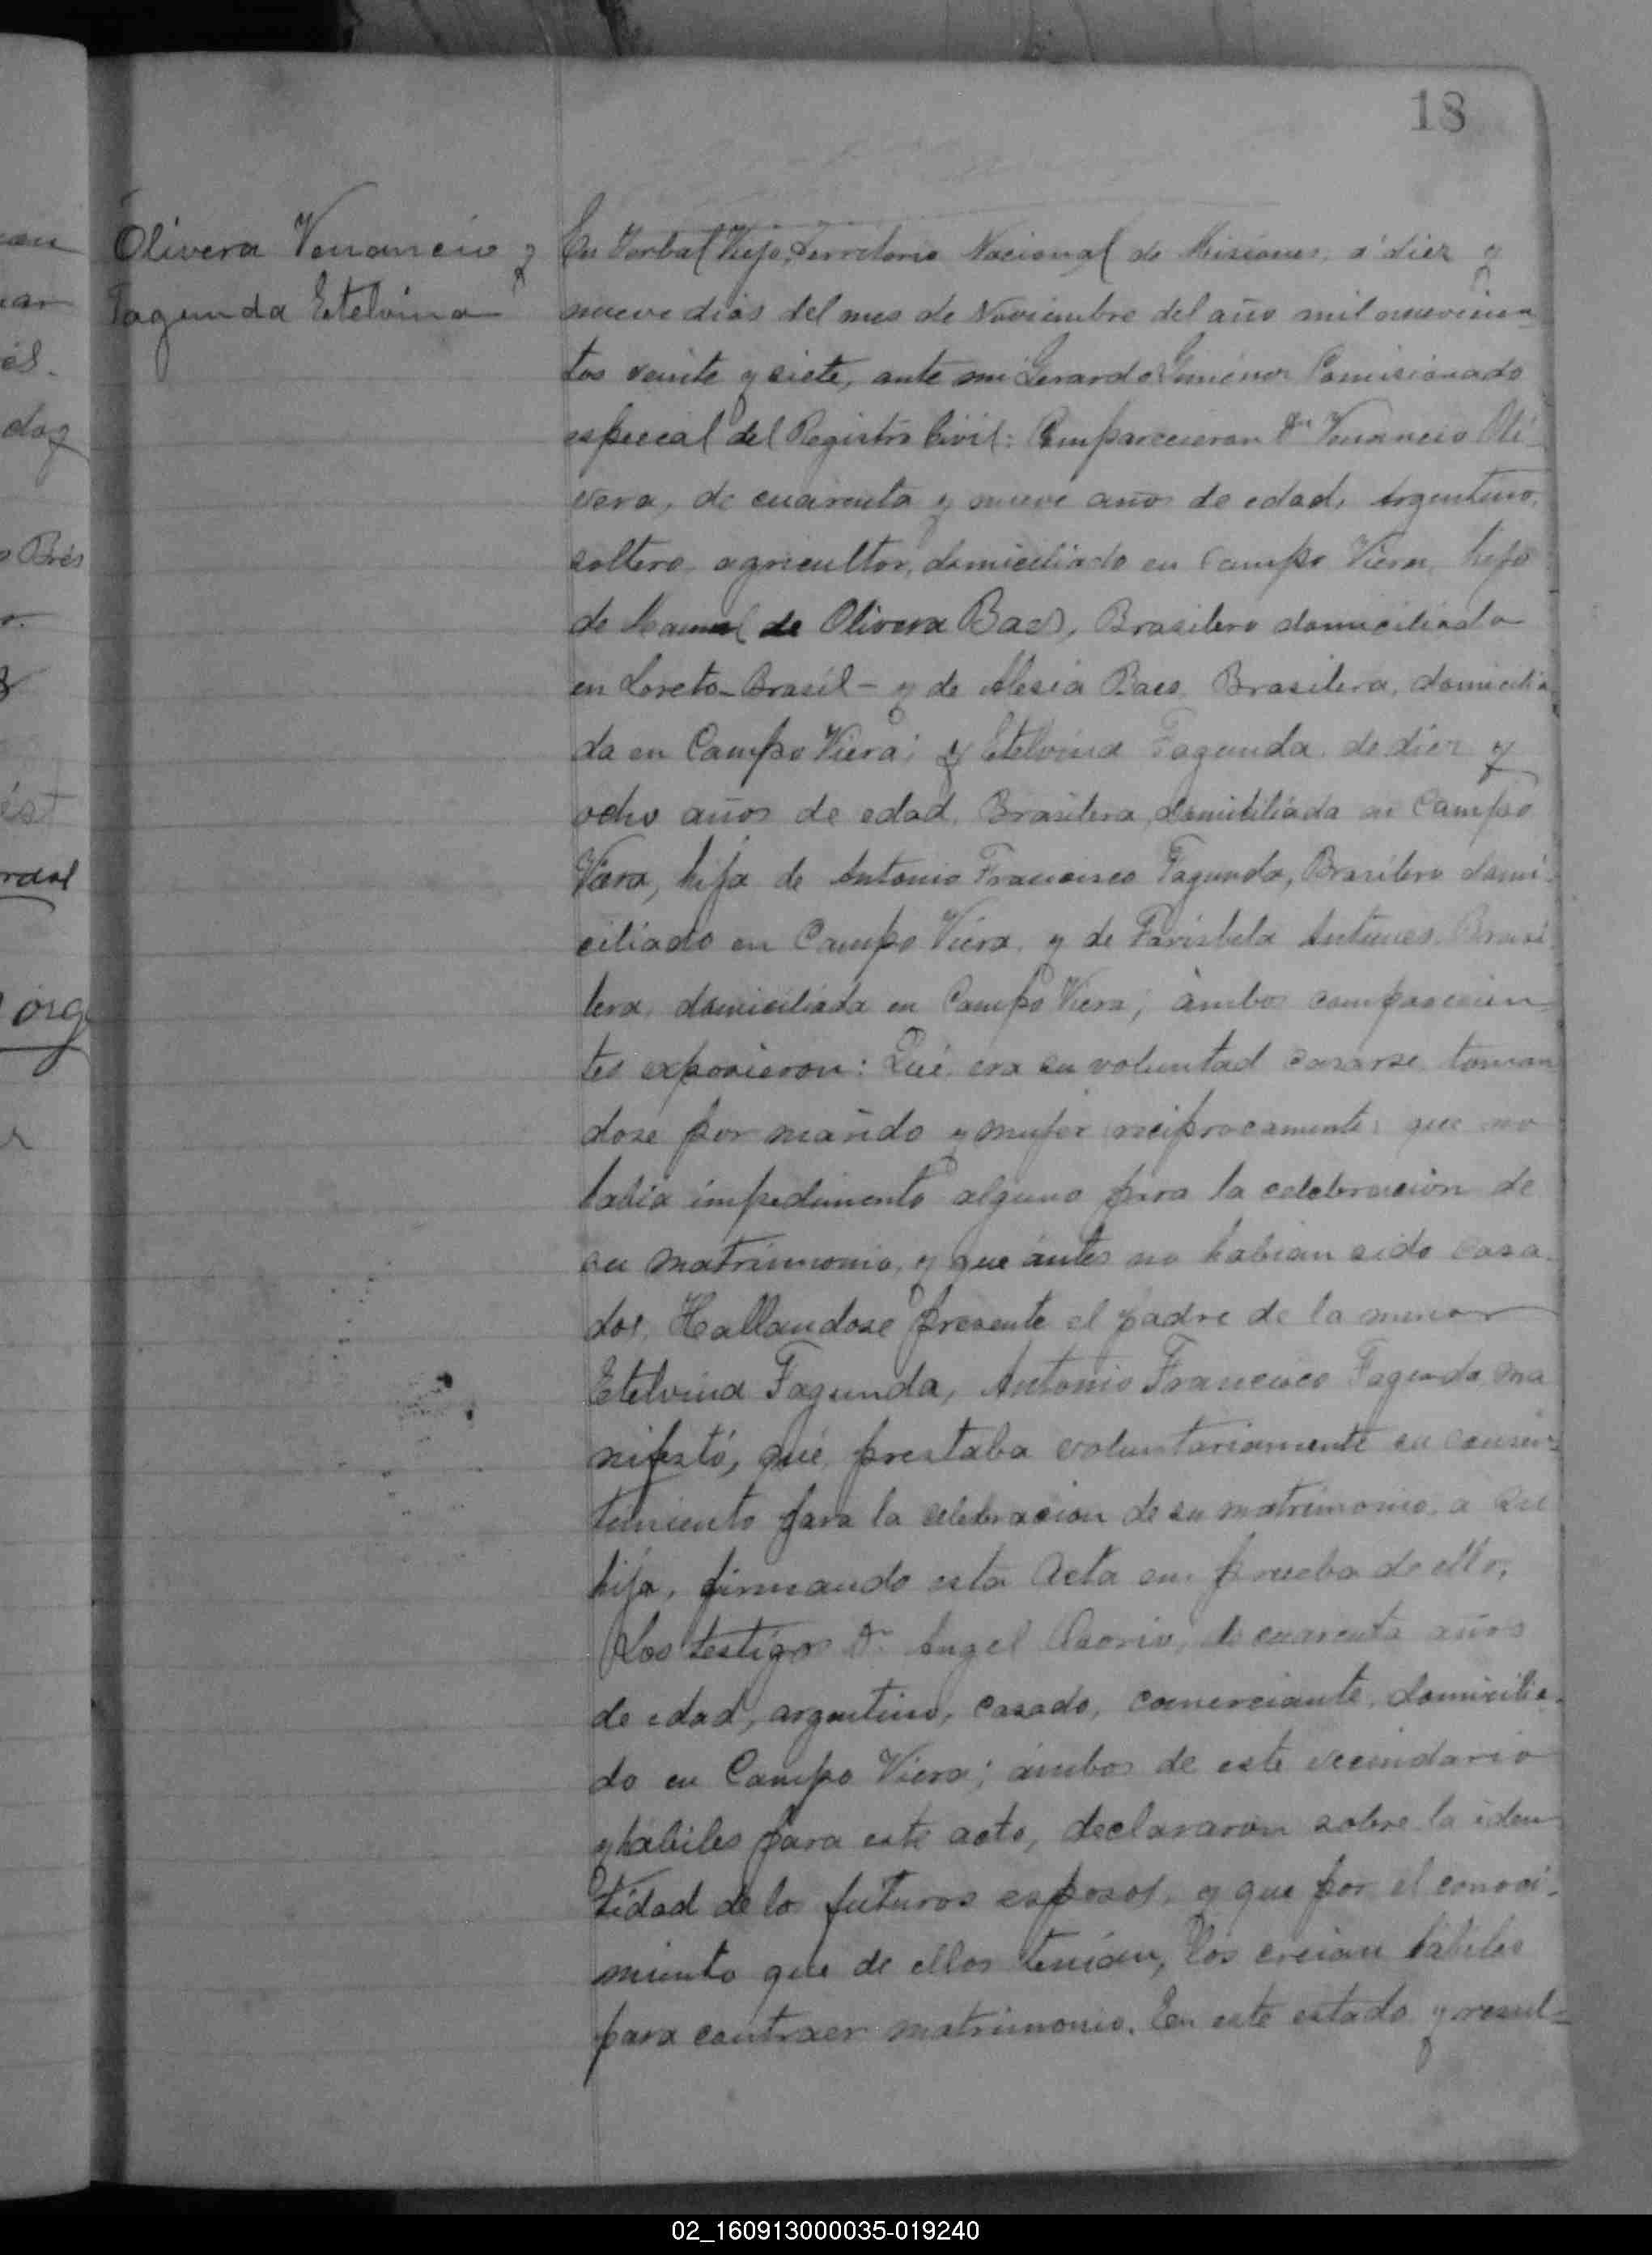 18
Olivera Venancio y
Fagunda Etelvina
En Yerbal Viejo, Territorio Nacional de Misiones, á diez y
nueve dias del mes de Noviembre del año mil novecien-
tos veinte y siete, ante mi Gerardo Gimenez Comisionado
especial del Registro Civil: Comparecieron Dn Venancio Oli-
vera, de cuarenta y nueve años de edad, Argentino,
soltero, agricultor, domiciliado en Campo Viera, hijo
de Manuel de Olivera Baes, Brasilero domiciliado
en Loreto-Brasil- y de Alesia Baes Brasilera, domicilia
da en Campo Viera; y Etelvina Fagunda de diez y
ocho años de edad, Brasilera, domiciliada en Campo
Viera, hija de Antonio Francisco Fagunda, Brasilero domi-
ciliado en Campo Viera, y de Farisbela Antunes, Brasi
lera, domiciliada en Campo Viera; ámbos comparecien
tes expusieron: Qué era su voluntad casarse toman
dose por marido y mujer reciprocamente: que no
habia impedimento alguno para la celebracion de
su matrimonio, y que ántes no habian sido casa-
dos. Hallandose presente el padre de la menor
Etelvina Fagunda, Antonio Francisco Fagunda, ma
nifestó, qué, prestaba voluntariamente su consen-
timiento para la celebracion de su matrimonio a su
hija, firmando esta Acta en prueba de ello,
Los testigos Dn Angel Osorio, de cuarenta años
de edad, argentino, casado, comerciante, domicilia-
do en Campo Viera; ámbos de este vecindario
y habiles para este acto, declararon sobre la iden
tidad de los futuros esposos, y que por el conoci-
miento que de ellos tenian, los creian habiles
para contraer matrimonio. En este estado y resul-
an
ar
és.
doz
Brés
ést
rdal
org
02_160913000035-019240